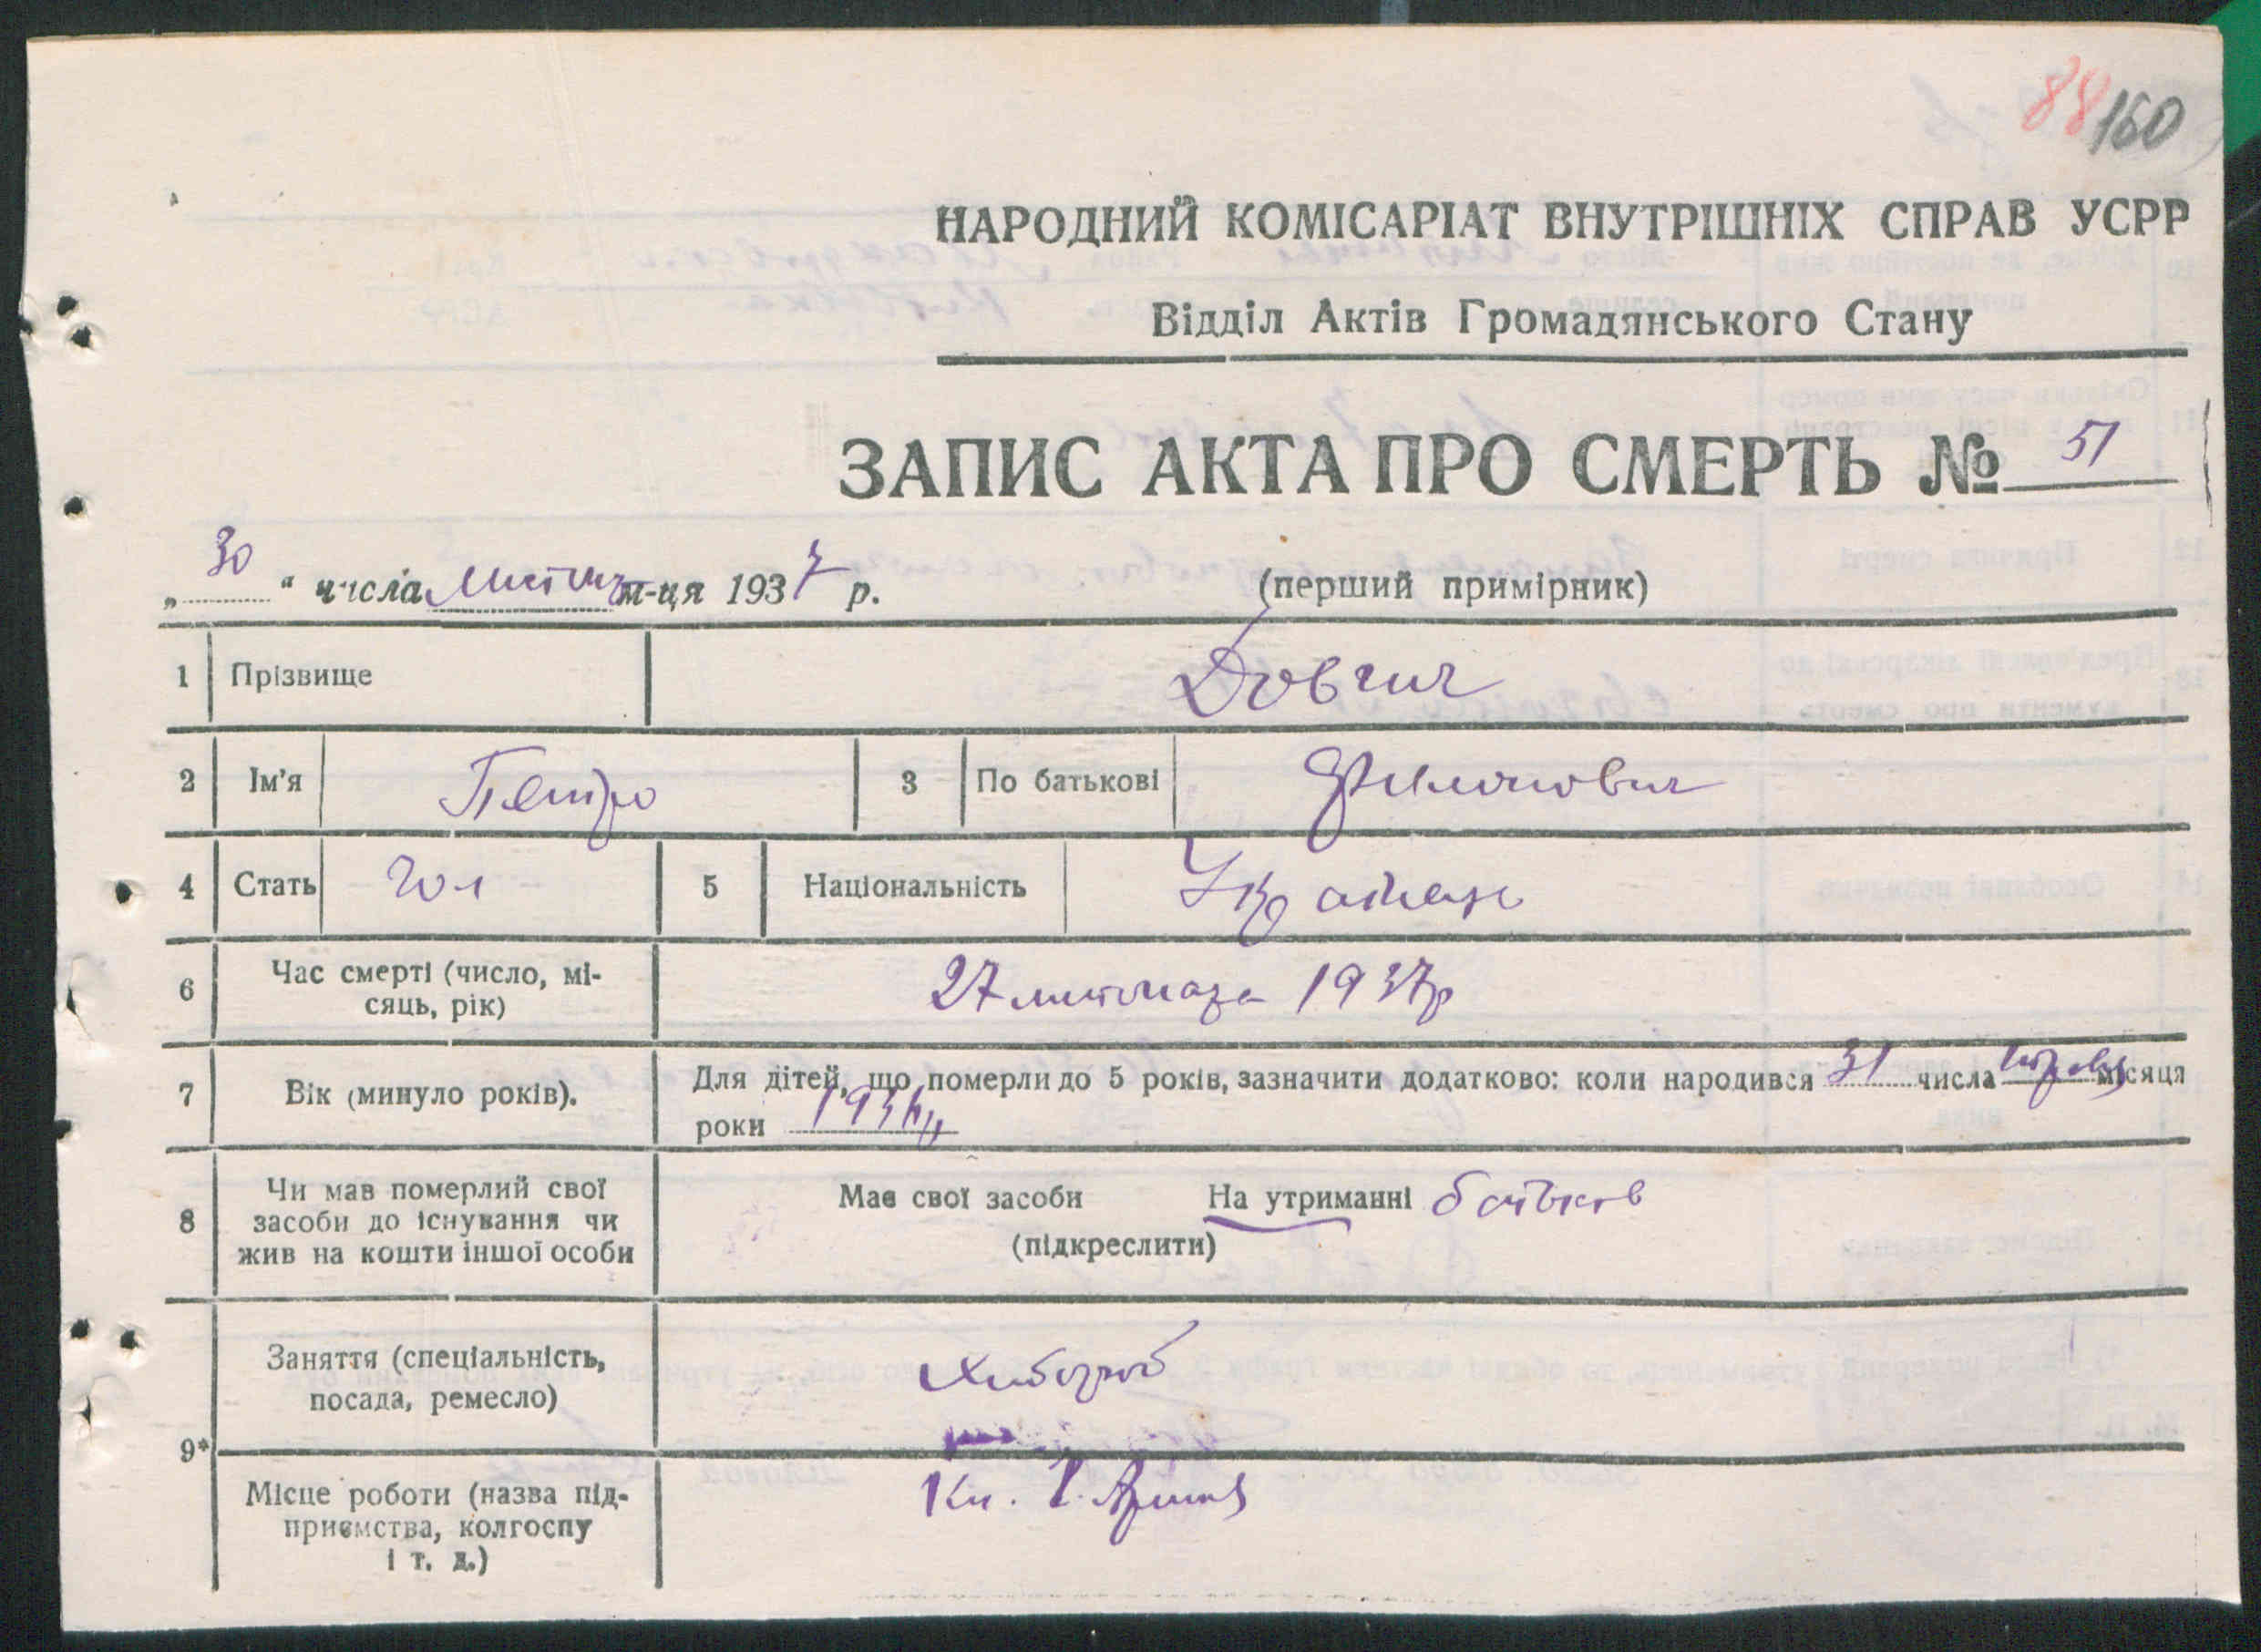 88 160
НАРОДНИЙ КОМІСАРІАТ ВНУТРІШНІХ СПРАВ УСРР
Відділ Актів Громадянського Стану
ЗАПИС АКТА ПРО СМЕРТЬ № 51
„30" числа м-ця 1937 р. (перший примірник)
1 Прізвище Довгич
2 Ім'я Петро 3 По батькові Филимонович
4 Стать чол 5 Національність Українець
6 Час смерті (число, мі-
сяць, рік) 27 листопада 1937р
7 Вік (минуло років). Для дітей, що померли до 5 років, зазначити додатково: коли народився 31 числа травня місяця
роки
8 Чи мав померлий свої
засоби до існування чи
жив на кошти іншої особи
Має свої засоби На утриманні батьків
(підкреслити)
9* Заняття (спеціальність,
посада, ремесло) Хлібороб
Місце роботи (назва під-
приємства, колгоспу
і т. д.)